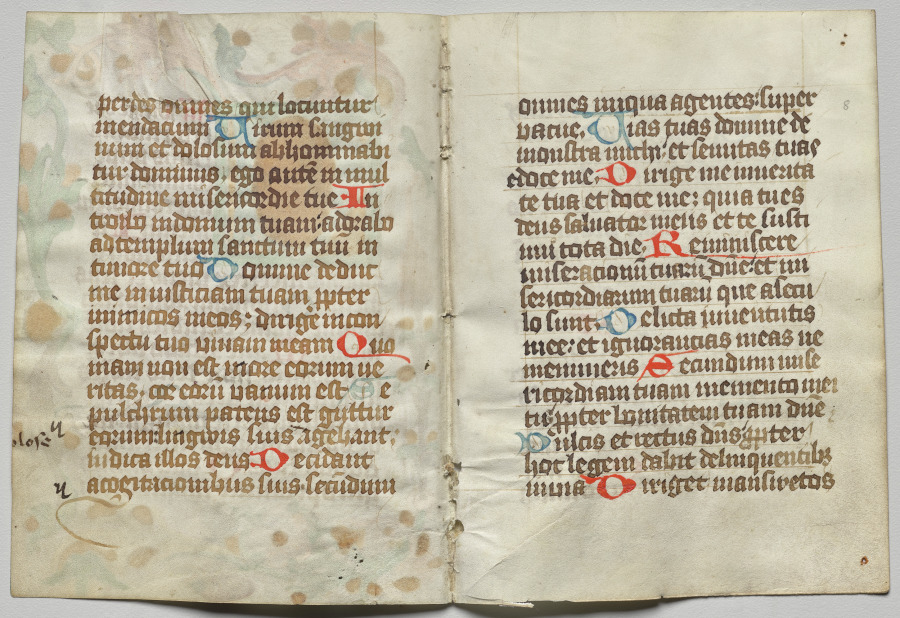 perdes omnes qui locuntur
mendacium Uirum sangwi
num et dolosum abhominabi
tur dominus, ego autē in mul
titudine misericordie tue In
troibo in domum tuam: adorabo
ad templum sanctum tuū in
timore tuo Domine deduc
me in iusticiam tuam ꝓpter
inimicos meos; dirige in con
spectu tuo uiuam meam Quo
niam non est in ore eorum ue
ritas, cor eorū uanum est Se
pulchrum patens est guttur
eorum linguis suis agebant,
iudica illos deus Decidant
a cogitacionibus suis secūdum
omnes iniqua agentes: super
vacue. Uias tuas domine de
monstra michi: et semitas tuas
edoce me, Dirige me in uerita
te tua et doce me: quia tu es
deus saluator meus et te susti
nui tota die Reminiscere
miseracionū tuarū dūe: et mi
sericordiarum tuarū que a secu
lo sunt. Delicta iuuentutis
mee: et ignorancias meas ne
memineris Secundum mise
ricordiam tuam memento mei
tu ꝓpter bonitatem tuam dūe
Dulcis et rectus dūs: ꝓpter
hoc legem dabit delinquentibꝫ
in uia Diriget mansuetos
8